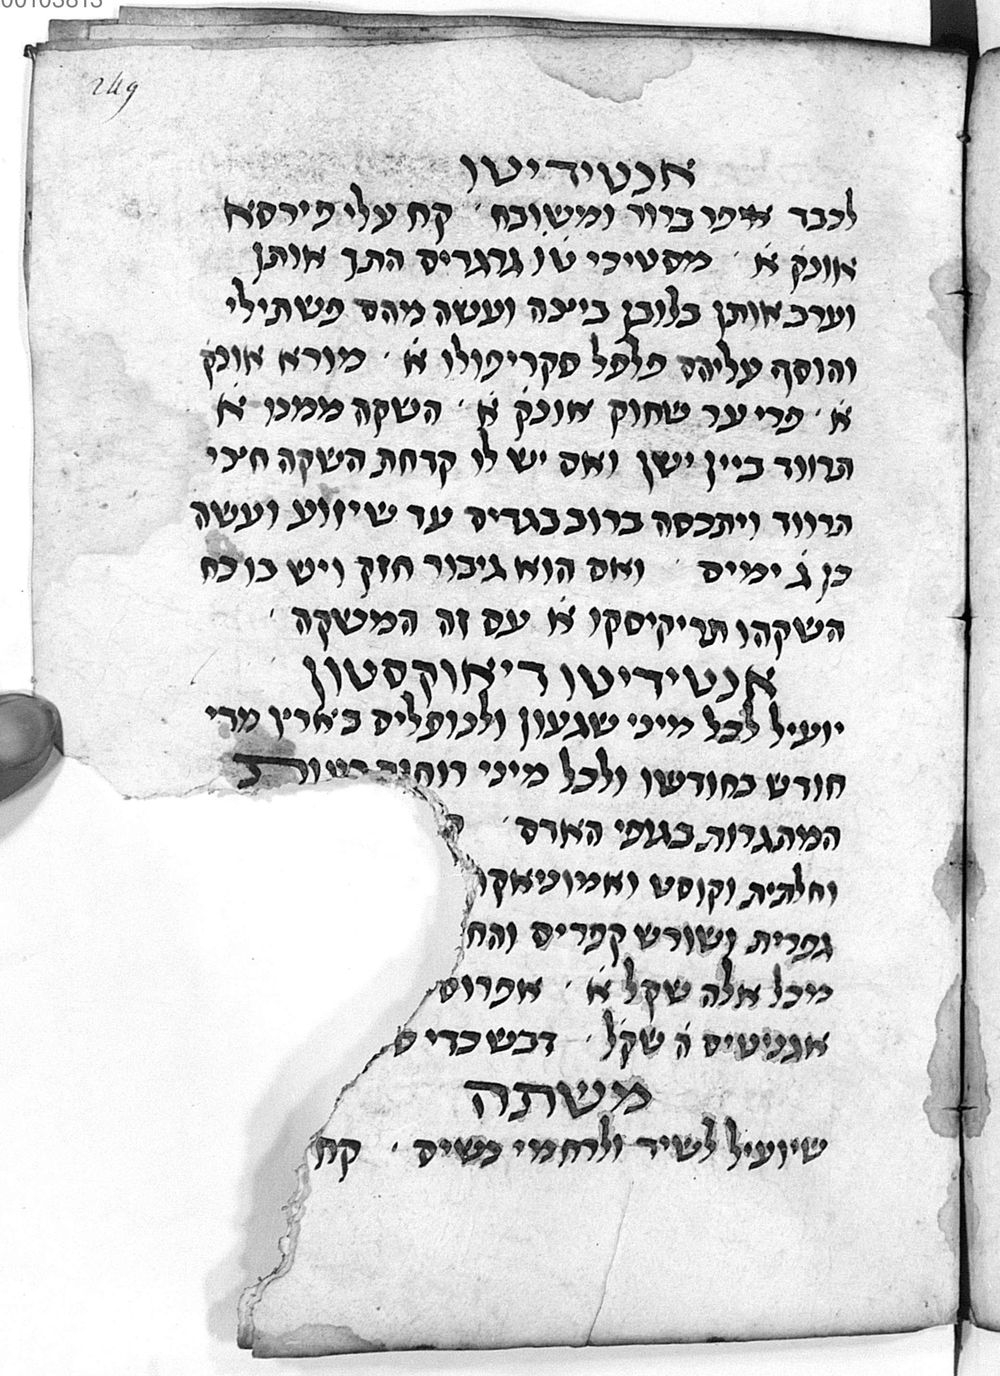 00103813
249
אנטידיטו
לכבד איפר ברור ומשובח קח עלי פירסא
אונק א מסטיכי טו גרגרים התך אותן
וערב אותן בלובן ביצה ועשה מהם פשתילי
והוסף עליהם פלפל סקריפולו א מורא אונק
א פרי ער שחוק אונק א השקה ממנו א
תרווד ביין ישן ואם יש לו קדחת השקה חצי
תרווד ויתכסה ברוב בגדים עד שיזוע ועשה
כן ג ימים ואם הוא גיבור חזק ויש בו כח
השקהו תריקיסקו א עם זה המשקה
אנטידיטו דיאוקסטון
יועיל לכל מיני שגעון ולנופלים בארץ מדי
חודש בחודשו ולכל מיני רוחות רעות
המתגרות בגופי האדם
וחלתית וקוסט ואמוניאקו
גפרית ושורש קפרים והח
מכל אלה שקל א אפרוס
אגניטיס ה שקל דבש כדי ס
משתה
שיועיל לשיד ולרחמי נשים קח